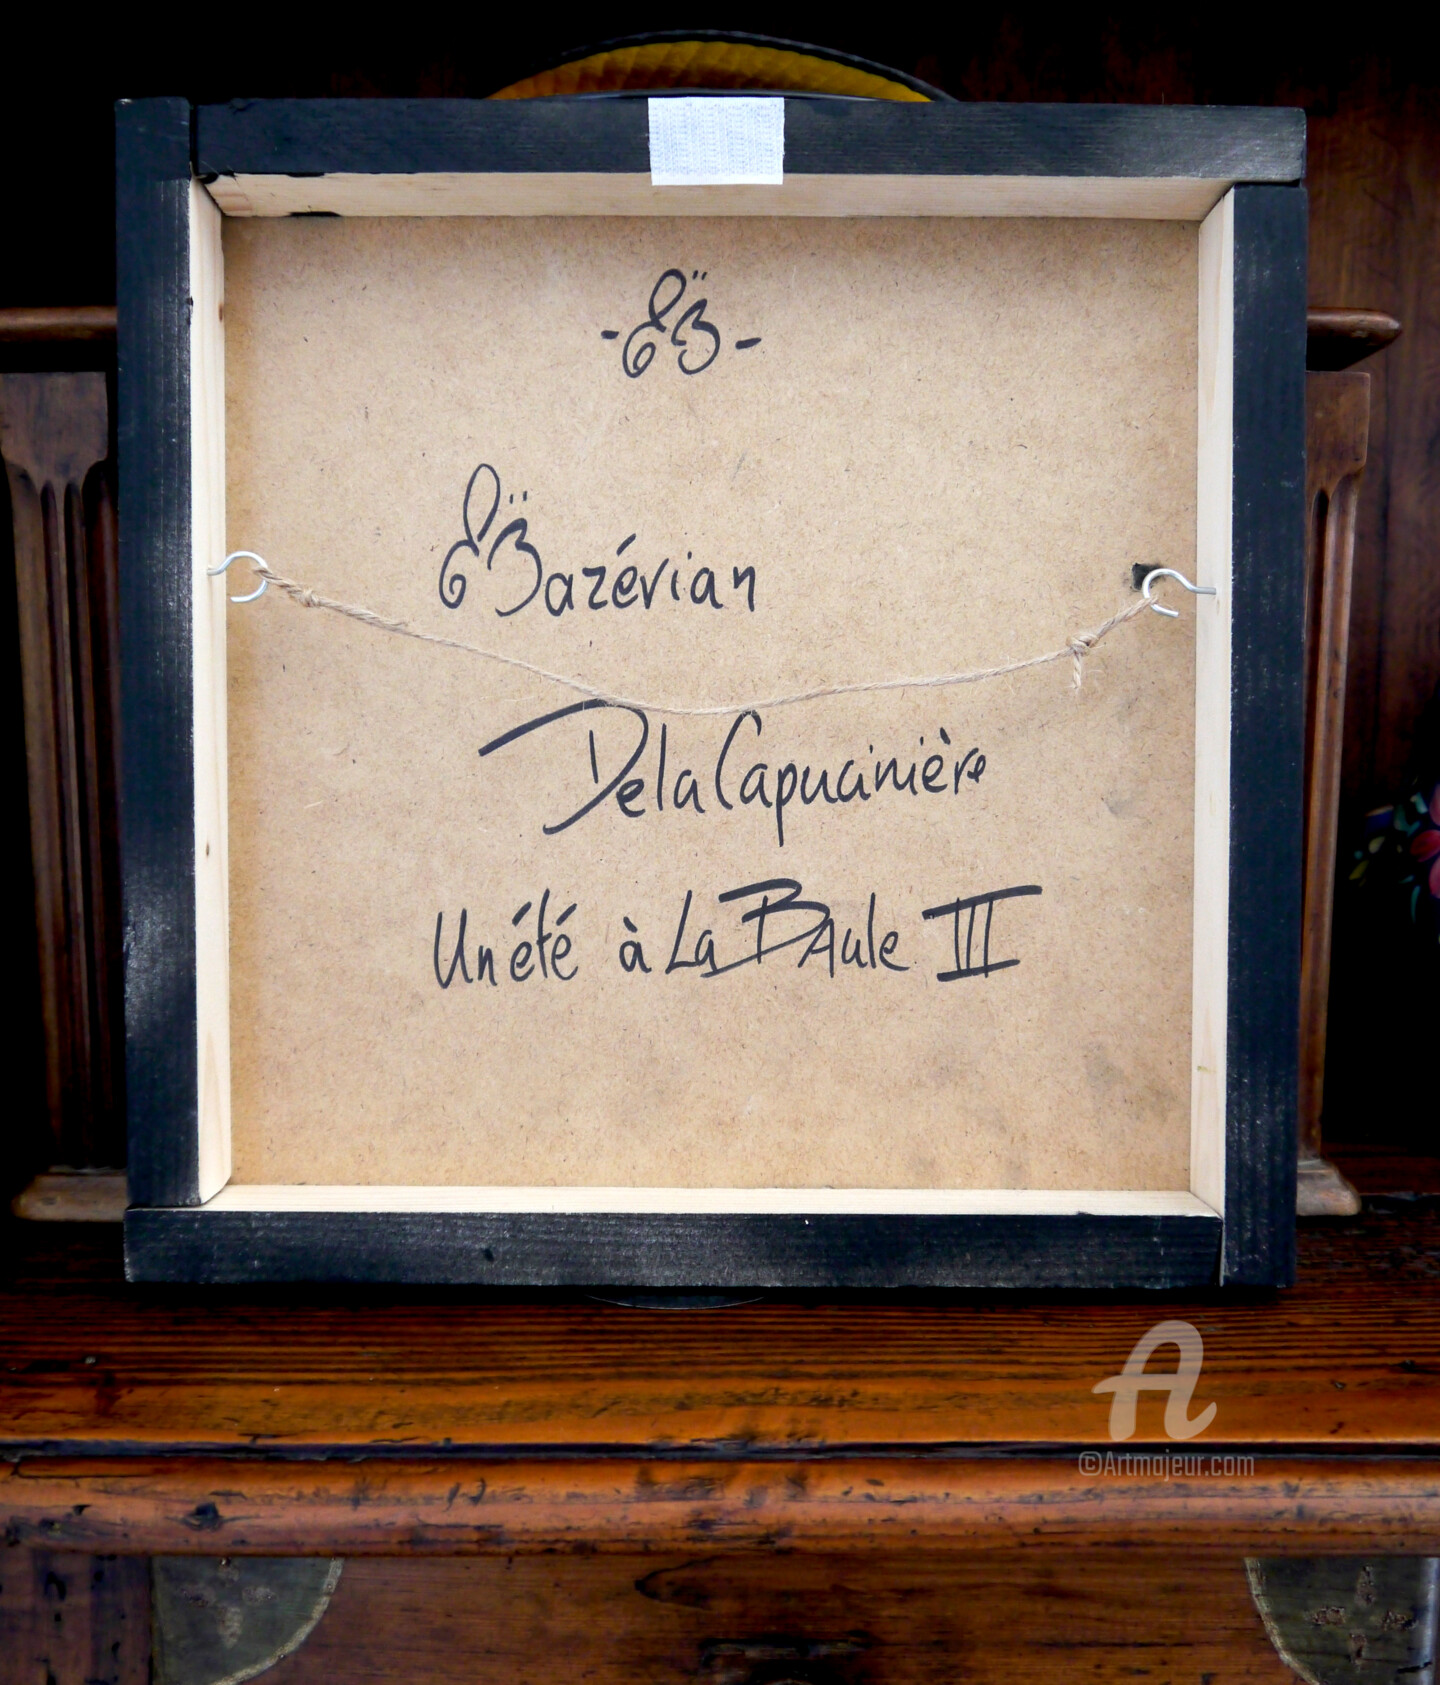 Bazérian
Dela Capucinière
Un été à La BAule III
©Artmajeur.com